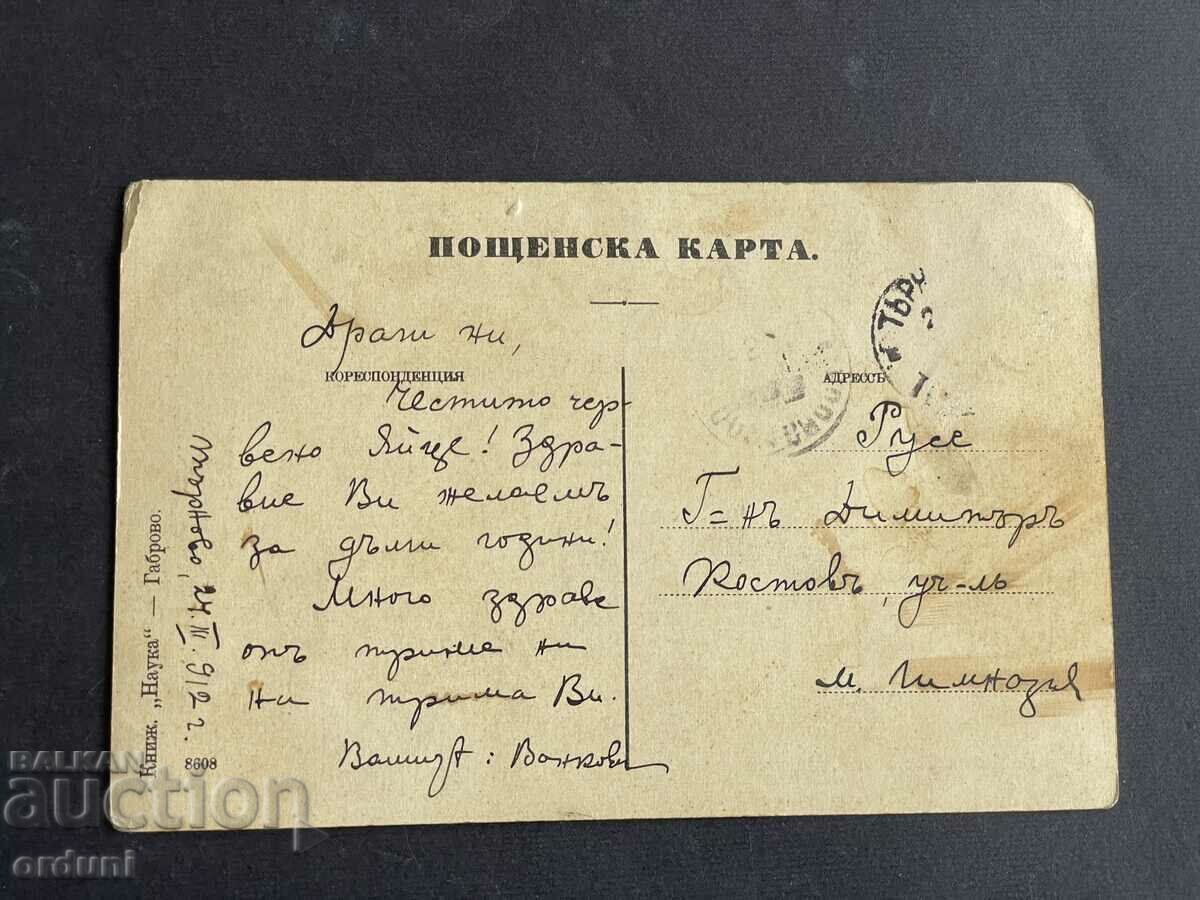 ПОЩЕНСКА КАРТА.
Драги ни,
КОРЕСПОНДЕНЦИЯ
Честито чер-
вено Яйце! Здра-
вие Ви желаемъ
за дълги години!
Много здраве
отъ трима ни
на трима Ви.
Вашитѣ:Ванкови
24.III.912 г.
Книж. „Наука“ — Габрово.
8608
АДРЕССЪ
Русе
Г=нъ Димитъръ
Костовъ, уч-ль
м. Гимназия
ТЪР
BALKAN
auction
orduni